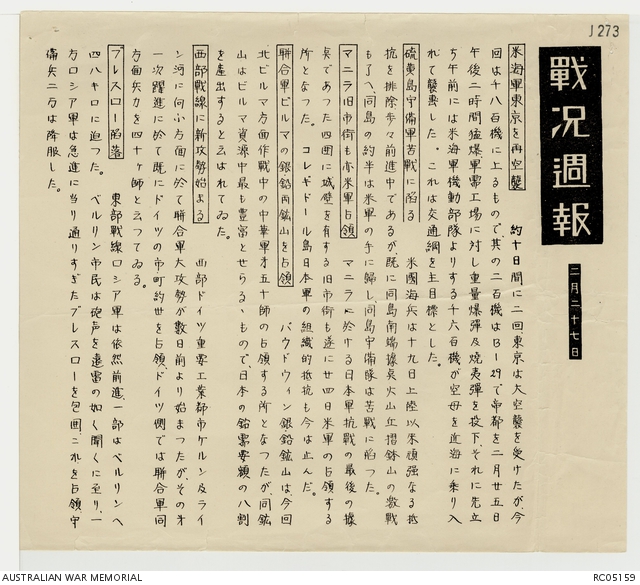 J273
戰況週報
二月二十七日
米海軍東京を再空襲　約十日間に二回東京は大空襲を受けたが、今
回は千八百機に上るもので其の二百機はB-29で帝都を二月廿五日
午後二時間猛爆軍需工場に対し重量爆弾及焼夷弾を投下、それに先立
ち午前には米海軍機動部隊よりする千六百機が空母を近海に乗り入
れて襲撃した。これは交通網を主目標とした。
硫黄島守備軍苦戦に陥る　米國海兵は十九日上陸以来頑強なる抵
抗を排除歩々前進中であるが既に同島南端據点火山丘摺鉢山の激戦
も了へ、同島の約半は米軍の手に歸し同島守備隊は苦戦に陥つた。
マニラ旧市街も亦米軍占領　マニラに於ける日本軍抗戦の最後の據
点であつた四囲に城壁を有する旧市街も遂に廿四日米軍の占領する
所となつた。コレギドール島日本軍の組織的抵抗も今は止んだ。
聯合軍ビルマの銀鉛両鉱山を占領　バウドウィン銀鉛鉱山は、今回
北ビルマ方面作戦中の中華軍才五十師の占領する所となつたが、同鉱
山はビルマ資源中最も豊富とせらるゝもので、日本の鉛需要額の八割
を産出すると云はれてゐた。
西部戰線に新攻勢始まる　西部ドイツ重要工業都市ケルン及ライ
ン河に向ふ方面に於て聯合軍大攻勢が数日前より始まつたが、そのオ
一次躍進に於て既にドイツの市町約廿を占領、ドイツ側では聯合軍同
方面兵力を四十ヶ師と云つてゐる。
ブレスロー陥落　東部戰線ロシア軍は依然前進、一部はベルリンへ
四八キロに迫つた。　ベルリン市民は砲声を遠雷の如く聞くに至り、一
方ロシア軍は急進に当り通りすぎたブレスローを包囲、これを占領守
備兵二万は降服した。
AUSTRALIAN WAR MEMORIAL
RC05159